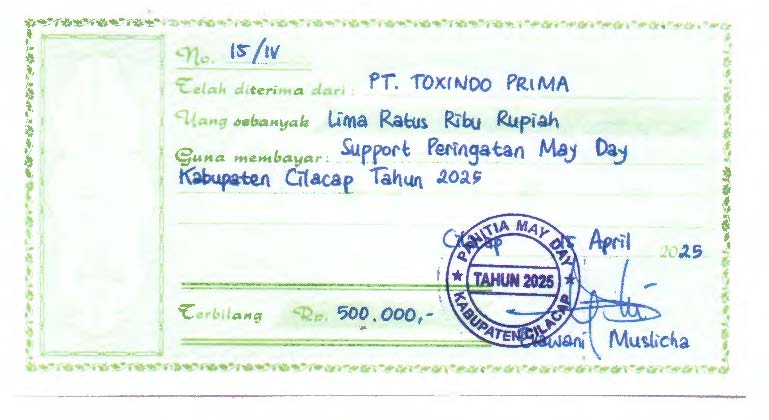 No. 15/IV
Telah diterima dari: PT. TOXINDO PRIMA
Uang sebanyak Lima Ratus Ribu Rupiah
Guna membayar: Support Peringatan May Day
Kabupaten Cilacap Tahun 2025
Cilacap 15 April 2025
PANITIA MAY DAY
TAHUN 2025
KABUPATEN CILACAP
Terbilang Rp. 500.000,-
Muslicha